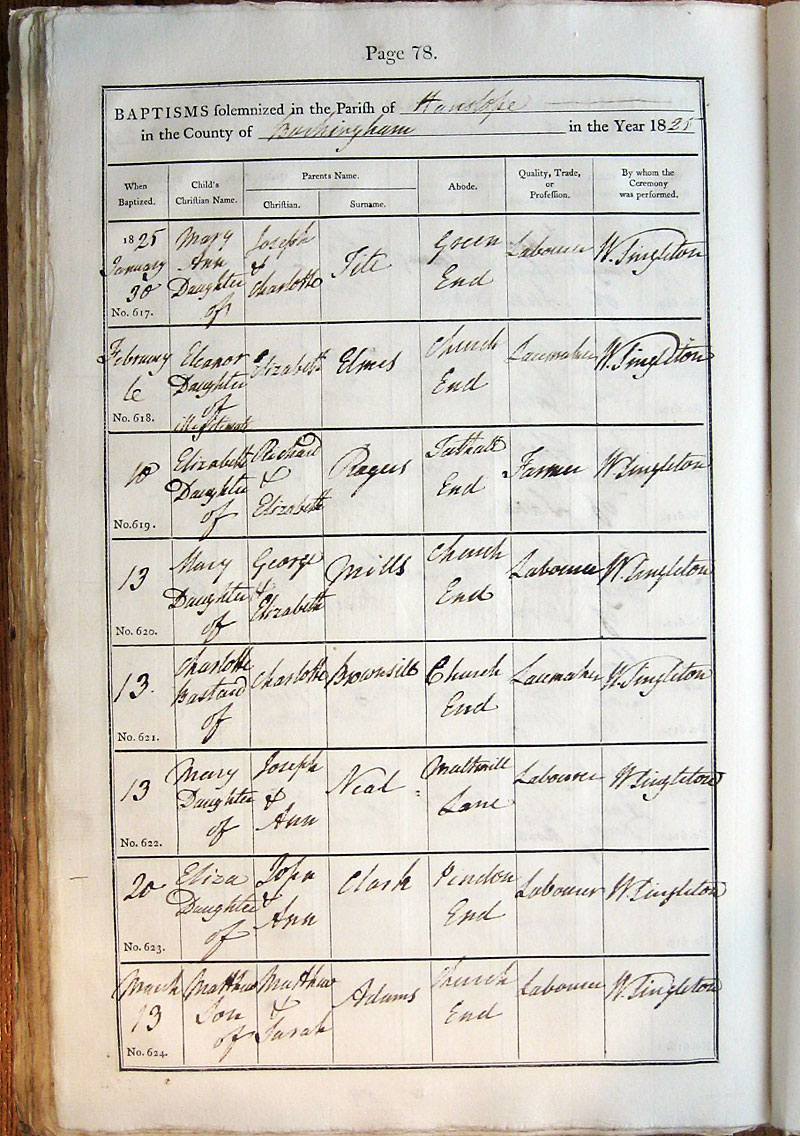 Page 78.
BAPTISMS solemnized in the Parish of Hanslope
in the County of Buckingham in the Year 1825
When Baptized.
Child's Christian Name.
Parents Name.
Christian.
Surname.
Abode.
Quality, Trade, or Profession.
By whom the Ceremony was performed.
1825
January
30
No. 617.
Mary
Ann
Daughter
of
Joseph
&
Charlotte
Tite
Green
End
Labourer
W. Singleton
February
6
No. 618.
Eleanor
Daughter
of
illegitimate
Elizabeth
Elmes
Church
End
Lacemaker
W. Singleton
10
No. 619.
Elizabeth
Daughter
of
Richard
&
Elizabeth
Rogers
Tathall
End
Farmer
W Singleton
13
No. 620.
Mary
Daughter
of
George
&
Elizabeth
Mills
Church
End
Labourer
W. Singleton
13.
No. 621.
Charlotte
Bastard
of
Charlotte
Brownsill
Church
End
Lacemaker
W. Singleton
13
No. 622.
Mary
Daughter
of
Joseph
&
Ann
Neal
Lane
Labourer
W Singleton
20
No. 623.
Eliza
Daughter
of
John
&
Ann
Clark
Pindon
End
Labourer
W. Singleton
March
13
No. 624.
Matthew
Son
of
Matthew
&
Sarah
Adams
Church
End
Labourer
W. Singleton